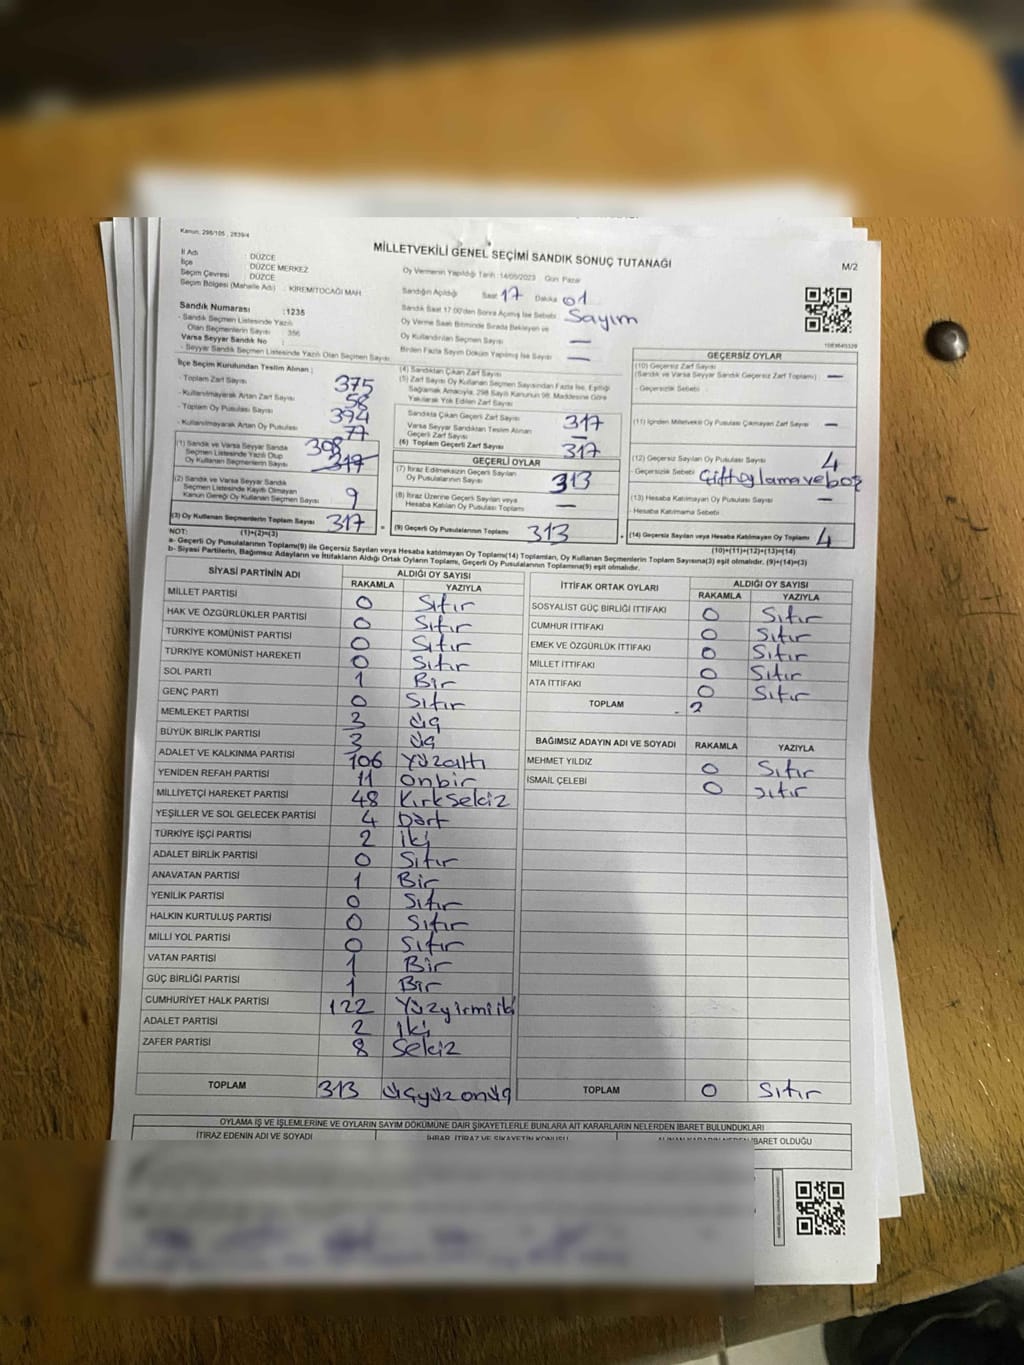 Kanun, 298/105 , 2839/4
MİLLETVEKİLİ GENEL SEÇİMİ SANDIK SONUÇ TUTANAĞI
M/2
İl Adı : DÜZCE
İlçe : DÜZCE MERKEZ
Seçim Çevresi : DÜZCE
Seçim Bölgesi (Mahalle Adı) : KİREMİTOCAĞI MAH.
Oy Vermenin Yapıldığı Tarih :14/05/2023 Gün: Pazar
Sandığın Açıldığı Saat 17 Dakika 01
Sandık Saat 17:00'den Sonra Açılmış İse Sebebi Sayım
Oy Verme Saati Bitiminde Sırada Bekleyen ve
Oy Kullandırılan Seçmen Sayısı —
Birden Fazla Sayım Döküm Yapılmış İse Sayısı —
Sandık Numarası :1235
- Sandık Seçmen Listesinde Yazılı
Olan Seçmenlerin Sayısı : 356
Varsa Seyyar Sandık No :
- Seyyar Sandık Seçmen Listesinde Yazılı Olan Seçmen Sayısı:
İlçe Seçim Kurulundan Teslim Alınan ;
- Toplam Zarf Sayısı 375
- Kullanılmayarak Artan Zarf Sayısı 58
- Toplam Oy Pusulası Sayısı 394
- Kullanılmayarak Artan Oy Pusulası 77
(1) Sandık ve Varsa Seyyar Sandık
Seçmen Listesinde Yazılı Olup
Oy Kullanan Seçmenlerin Sayısı 308 317
(2) Sandık ve Varsa Seyyar Sandık
Seçmen Listesinde Kayıtlı Olmayan
Kanun Gereği Oy Kullanan Seçmen Sayısı 9
(3) Oy Kullanan Seçmenlerin Toplam Sayısı 317
(1)+(2)=(3)
(4) Sandıktan Çıkan Zarf Sayısı
(5) Zarf Sayısı Oy Kullanan Seçmen Sayısından Fazla İse, Eşitliği
Sağlamak Amacıyla, 298 Sayılı Kanunun 98. Maddesine Göre
Yakılarak Yok Edilen Zarf Sayısı
Sandıkta Çıkan Geçerli Zarf Sayısı 317
Varsa Seyyar Sandıktan Teslim Alınan
Geçerli Zarf Sayısı —
(6) Toplam Geçerli Zarf Sayısı 317
GEÇERLİ OYLAR
(7) İtiraz Edilmeksizin Geçerli Sayılan
Oy Pusulası Sayısı 313
(8) İtiraz Üzerine Geçerli Sayılan veya
Hesaba Katılan Oy Pusulası Toplamı —
(9) Geçerli Oy Pusulalarının Toplamı 313
GEÇERSİZ OYLAR
(10) Geçersiz Zarf Sayısı
(Sandık ve Varsa Seyyar Sandık Geçersiz Zarf Toplamı) : —
- Geçersizlik Sebebi :
(11) İçinden Milletvekili Oy Pusulası Çıkmayan Zarf Sayısı —
(12) Geçersiz Sayılan Oy Pusulası Sayısı 4
- Geçersizlik Sebebi Çift oylama ve boş
(13) Hesaba Katılmayan Oy Pusulası Sayısı —
- Hesaba Katılmama Sebebi
(14) Geçersiz Sayılan veya Hesaba Katılmayan Oy Toplamı 4
(10)+(11)+(12)+(13)=(14)
NOT:
a- Geçerli Oy Pusulalarının Toplamı(9) ile Geçersiz Sayılan veya Hesaba katılmayan Oy Toplamı(14) Toplamları, Oy Kullanan Seçmenlerin Toplam Sayısına(3) eşit olmalıdır. (9)+(14)=(3)
b- Siyasi Partilerin, Bağımsız Adayların ve İttifakların Aldığı Ortak Oyların Toplamı, Geçerli Oy Pusulalarının Toplamına(9) eşit olmalıdır.
SİYASİ PARTİNİN ADI ALDIĞI OY SAYISI
RAKAMLA YAZIYLA
MİLLET PARTİSİ 0 Sıfır
HAK VE ÖZGÜRLÜKLER PARTİSİ 0 Sıfır
TÜRKİYE KOMÜNİST PARTİSİ 0 Sıfır
TÜRKİYE KOMÜNİST HAREKETİ 0 Sıfır
SOL PARTİ 1 Bir
GENÇ PARTİ 0 Sıfır
MEMLEKET PARTİSİ 3 üç
BÜYÜK BİRLİK PARTİSİ 3 üç
ADALET VE KALKINMA PARTİSİ 106 Yüzaltı
YENİDEN REFAH PARTİSİ 11 onbir
MİLLİYETÇİ HAREKET PARTİSİ 48 Kırksekiz
YEŞİLLER VE SOL GELECEK PARTİSİ 4 Dört
TÜRKİYE İŞÇİ PARTİSİ 2 iki
ADALET BİRLİK PARTİSİ 0 Sıfır
ANAVATAN PARTİSİ 1 Bir
YENİLİK PARTİSİ 0 Sıfır
HALKIN KURTULUŞ PARTİSİ 0 Sıfır
MİLLİ YOL PARTİSİ 0 Sıfır
VATAN PARTİSİ 1 Bir
GÜÇ BİRLİĞİ PARTİSİ 1 Bir
CUMHURİYET HALK PARTİSİ 122 Yüzyirmiiki
ADALET PARTİSİ 2 iki
ZAFER PARTİSİ 8 Sekiz
TOPLAM 313 üçyüzonüç
İTTİFAK ORTAK OYLARI ALDIĞI OY SAYISI
RAKAMLA YAZIYLA
SOSYALİST GÜÇ BİRLİĞİ İTTİFAKI 0 Sıfır
CUMHUR İTTİFAKI 0 Sıfır
EMEK VE ÖZGÜRLÜK İTTİFAKI 0 Sıfır
MİLLET İTTİFAKI 0 Sıfır
ATA İTTİFAKI 0 Sıfır
TOPLAM
BAĞIMSIZ ADAYIN ADI VE SOYADI RAKAMLA YAZIYLA
MEHMET YILDIZ 0 Sıfır
İSMAİL ÇELEBİ 0 sıfır
TOPLAM 0 Sıfır
OYLAMA İŞ VE İŞLEMLERİNE VE OYLARIN SAYIM DÖKÜMÜNE DAİR ŞİKAYETLERLE BUNLARA AİT KARARLARIN NELERDEN İBARET BULUNDUKLARI
İTİRAZ EDENİN ADI VE SOYADI İHBAR, İTİRAZ VE ŞİKAYETİN KONUSU İBARET OLDUĞU